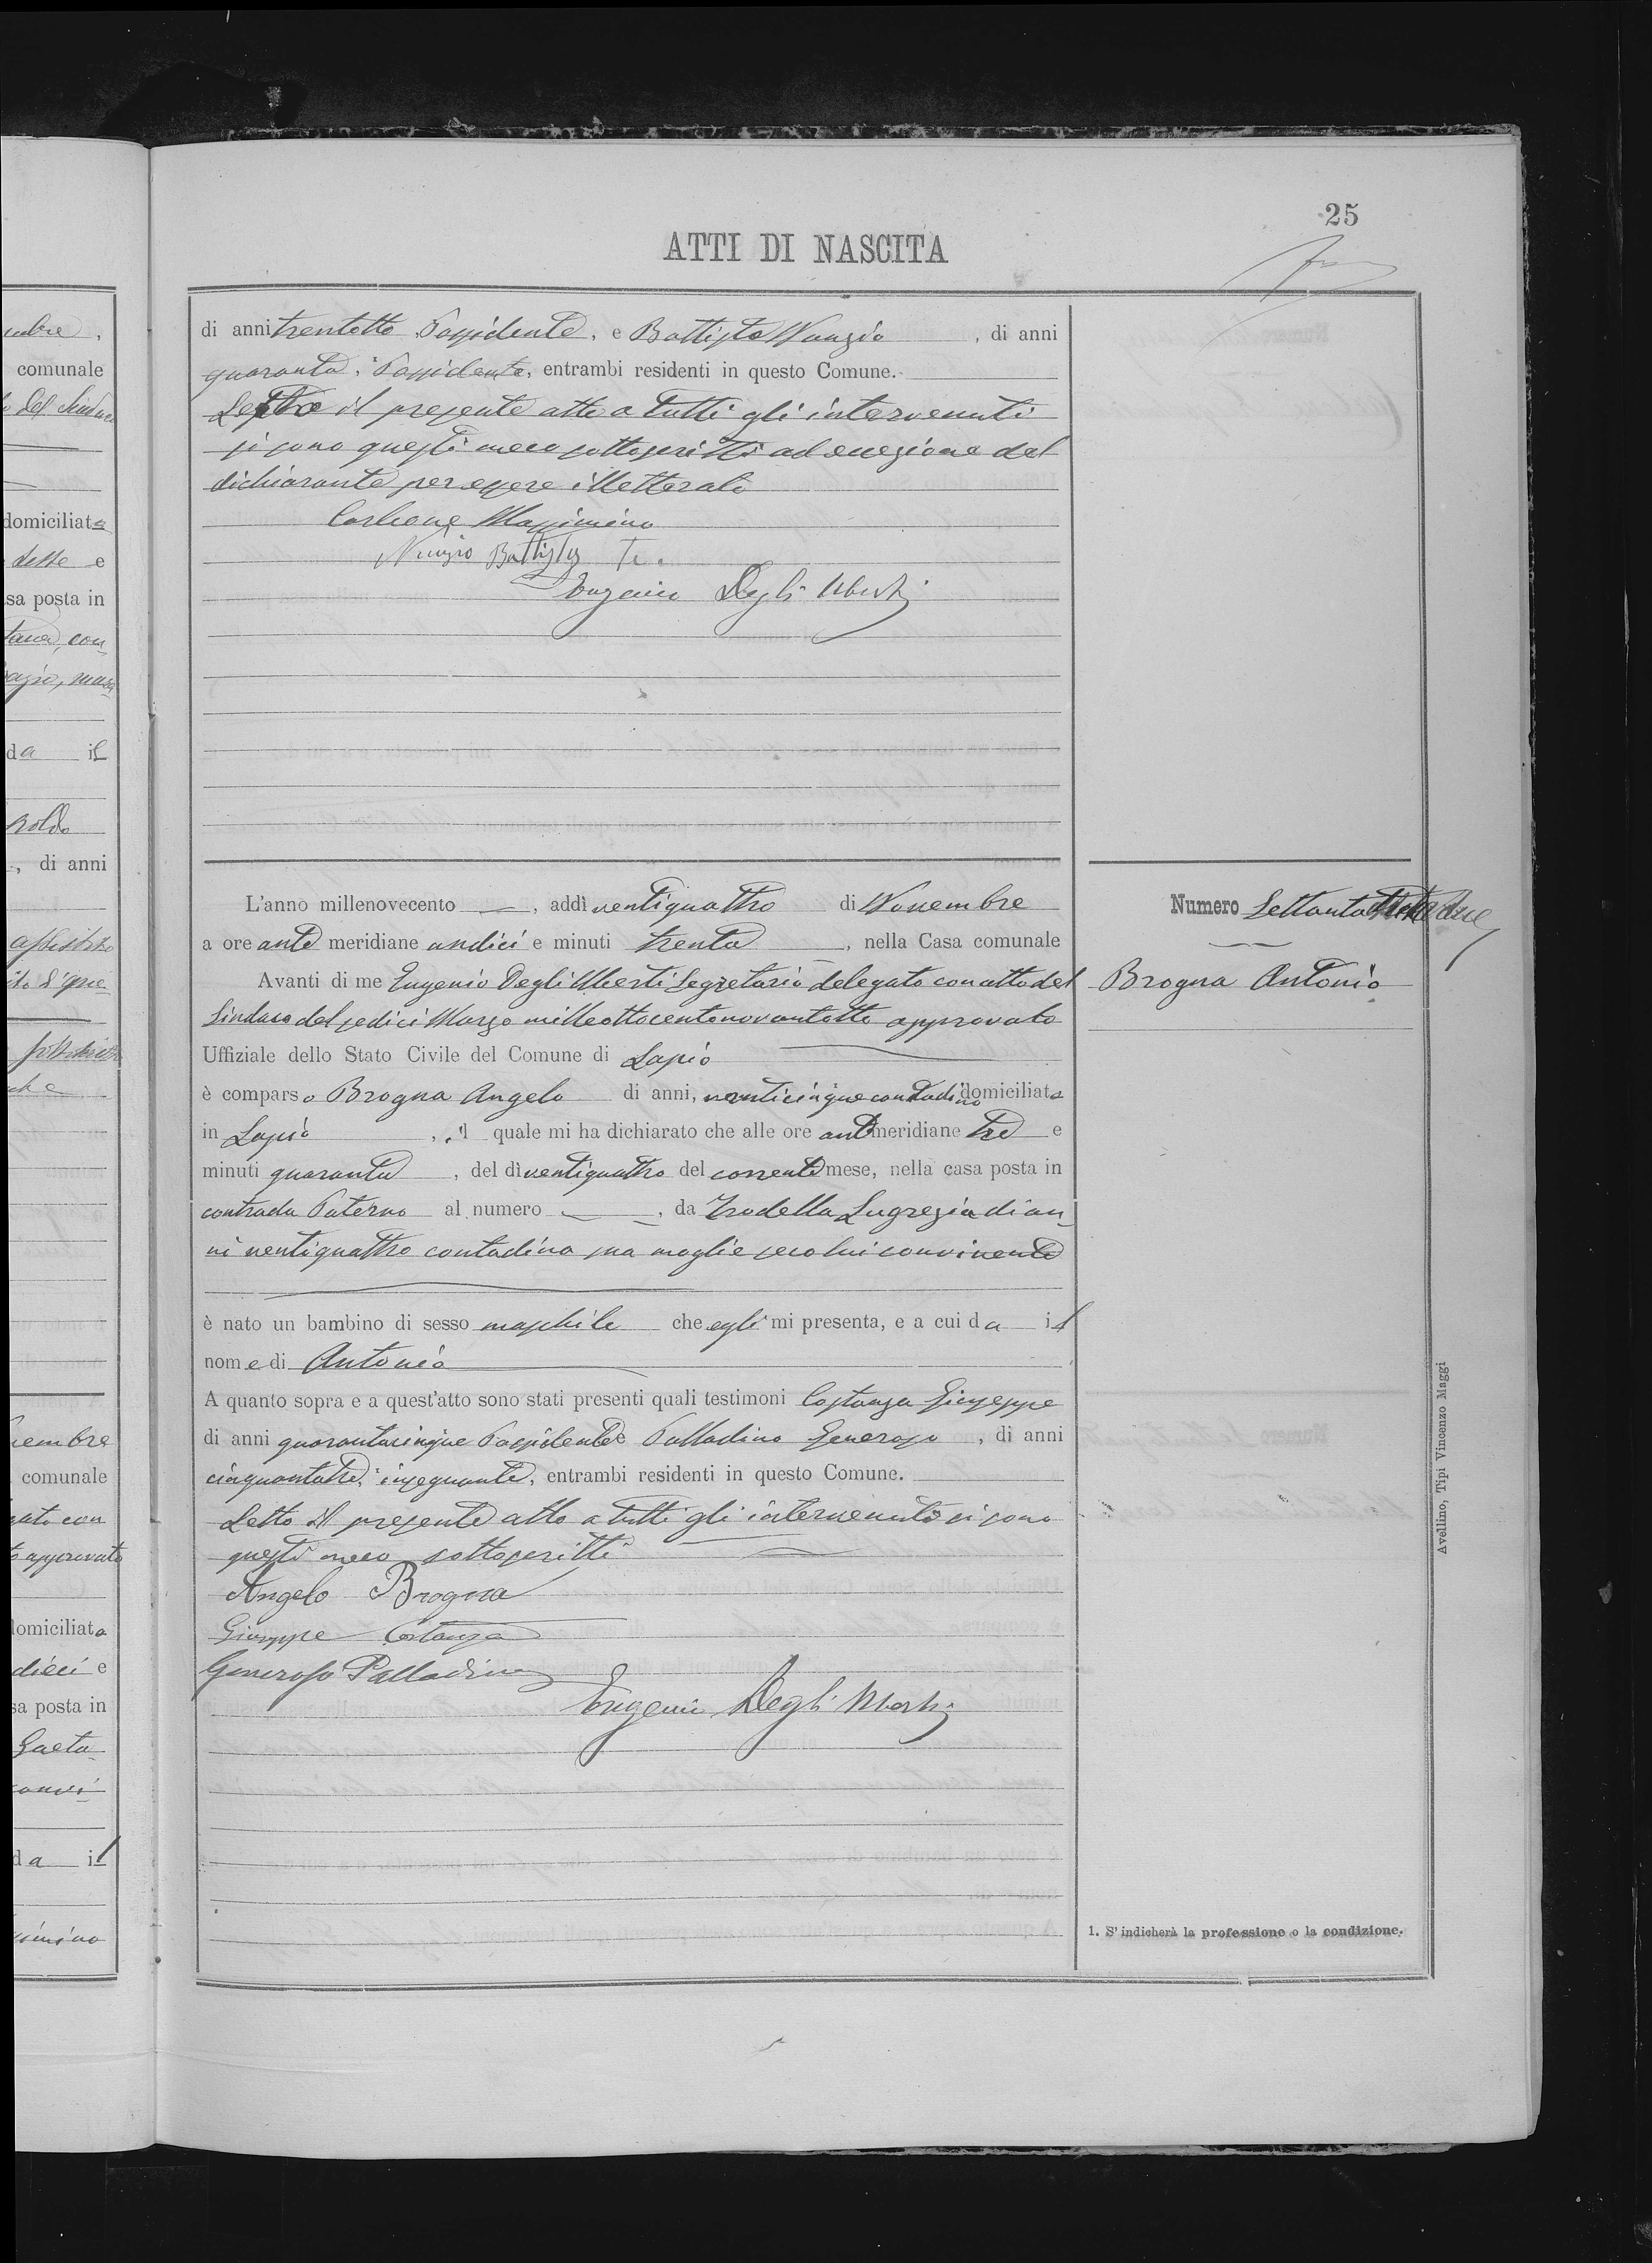 25
ATTI DI NASCITA
di anni trentotto, Possidente, e Battista Nunzio, di anni
quaranta, Possidente, entrambi residenti in questo Comune.
Letto il presente atto a tutti gli intervenuti
si sono questi meco sottoscritti ad eccezione del
dichiarante per essere illetterato
Carbone Massimino
Nunzio Battista Te.
Eugenio Degli Uberti
L'anno millenovecento —, addì ventiquattro di Novembre
a ore ante meridiane undici e minuti trenta, nella Casa comunale
Avanti di me Eugenio Degli Uberti Segretario delegato con atto del
Sindaco del sedici Marzo milleottocentonovantotto approvato
Uffiziale dello Stato Civile del Comune di Lapio
è comparso Brogna Angelo di anni, venticinque contadino domiciliato
in Lapio, il quale mi ha dichiarato che alle ore antimeridiane tre e
minuti quaranta, del dì ventiquattro del corrente mese, nella casa posta in
contrada Paterno al numero —, da Trodella Lugrezia di an-
ni ventiquattro contadina sua moglie seco lui convivente
è nato un bambino di sesso maschile che egli mi presenta, e a cui da il
nome di Antonio
A quanto sopra e a quest'atto sono stati presenti quali testimoni Costanza Giuseppe
di anni quarantacinque Possidente e Palladino Generoso, di anni
cinquantatre, insegnante, entrambi residenti in questo Comune.
Letto il presente atto a tutti gli intervenuti si sono
questi meco sottoscritti
Angelo Brogna
Giuseppe Costanza
Generoso Palladino
Eugenio Degli Uberti
Numero Settanta due
Brogna Antonio
1. S'indicherà la professione o la condizione.
Avellino, Tipi Vincenzo Maggi
comunale
domiciliata
dette e
sa posta in
da il
, di anni
comunale
to approvato
domiciliato
dieci e
sa posta in
Gaeta-
convi-
da il